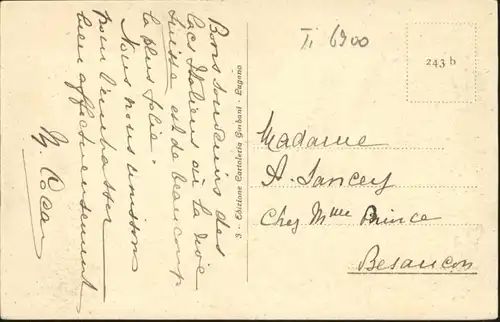 Bons souvenirs des
lacs Italiens où la rive
Suisse est de beaucoup
la plus jolie.
Nous nous unissons
pour t'embrasser
bien affectueusement
3 - Edizione Cartoleria - Lugano
Ti 6900
243 b
Madame
A. Sancey
Chez Mme Prince
Besançon